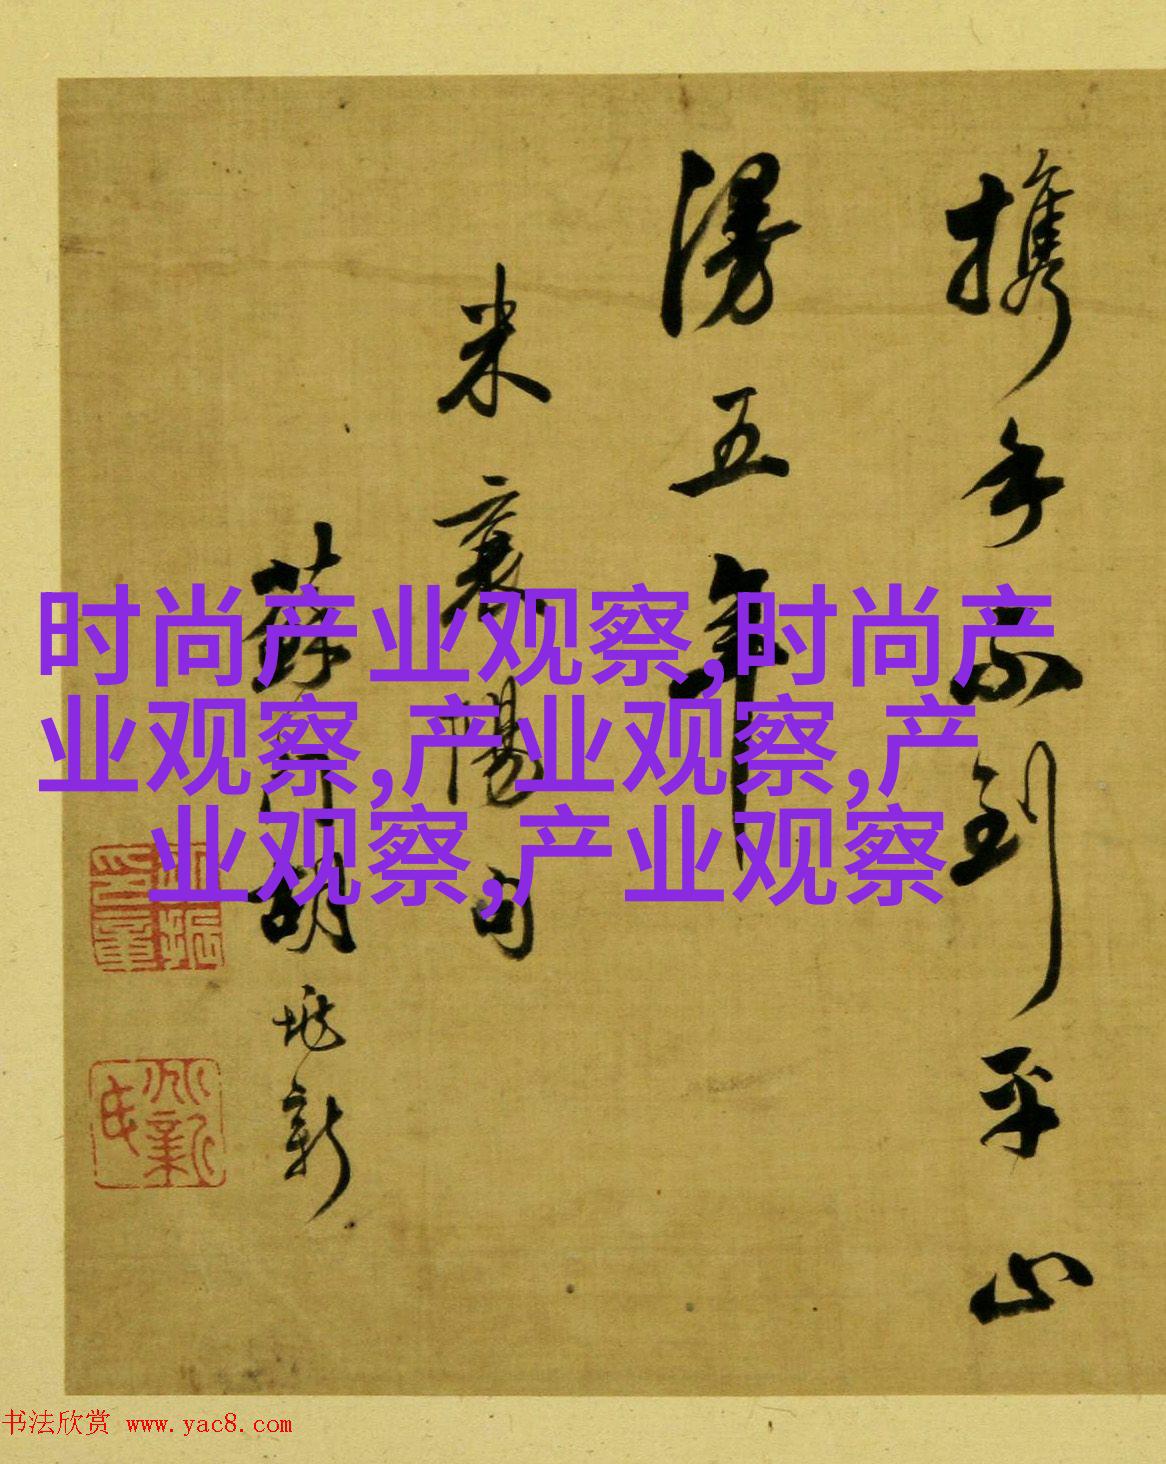 携手不到平山
漫五年
米襄陽句
蘇門胡垗新
时尚产业观察,时尚产
业观察,产业观察,产
业观察,产业观察
书法欣赏 www.yac8.com